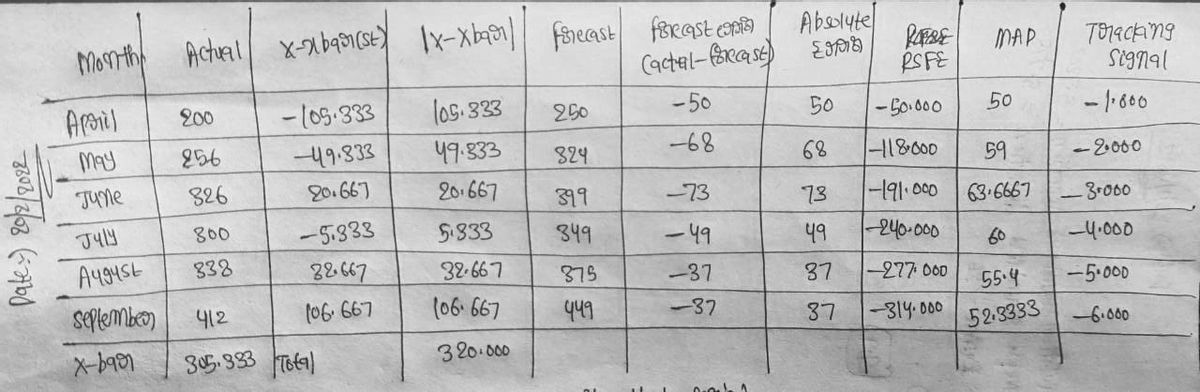 Month Actual x-xbar(st) |x-xbar| forecast forecast error (actual-forecast) Absolute Error RSFE MAD Tracking Signal
April 200 -105.333 105.333 250 -50 50 -50.000 50 -1.000
May 256 -49.333 49.333 324 -68 68 -118.000 59 -2.000
June 326 20.667 20.667 399 -73 73 -191.000 63.6667 -3.000
July 300 -5.333 5.333 349 -49 49 -240.000 60 -4.000
August 338 32.667 32.667 375 -37 37 -277.000 55.4 -5.000
September 412 106.667 106.667 449 -37 37 -314.000 52.3333 -6.000
x-bar 305.333 Total 320.000
Date:) 20/2/2022